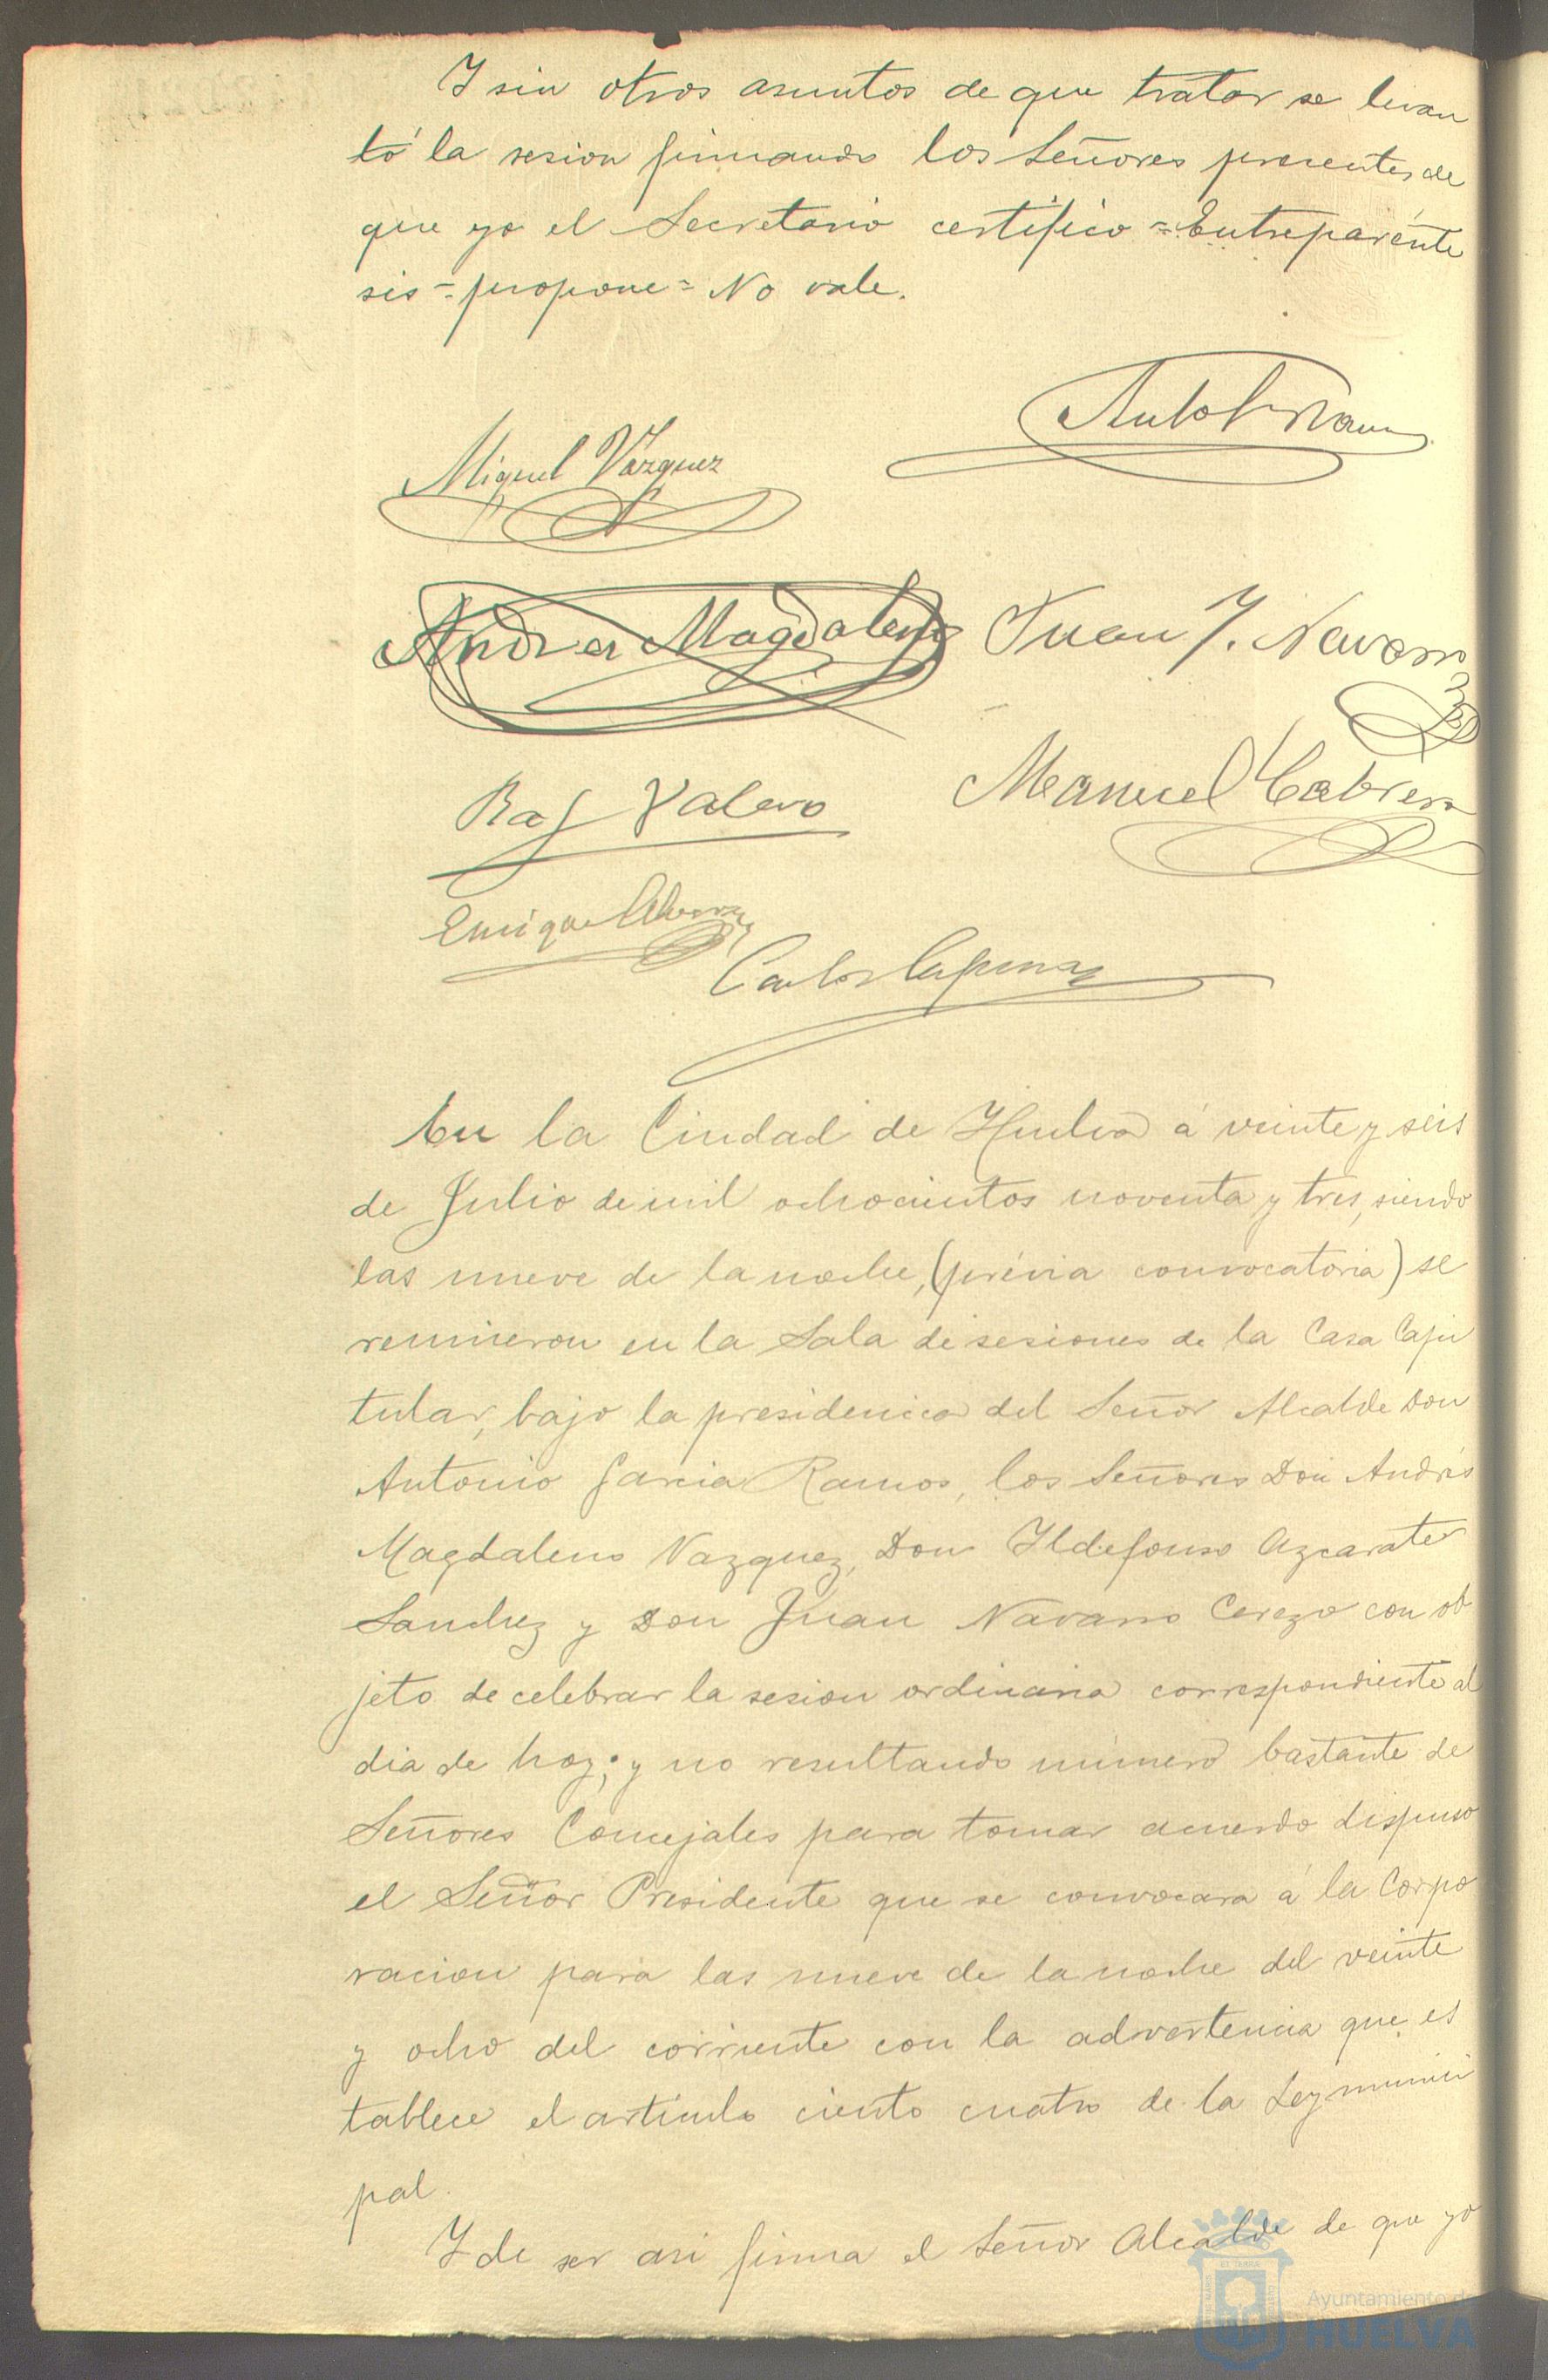 Y sin otros asuntos de que tratar se levan
tó la sesion firmando los Señores presentes de
que yo el Secretario certifico = Entreparénte
sis = propone = No vale.
Miguel Vázquez
Andres Magdaleno Juan J. Navarro
Raf Valero Manuel Cabrera
Enrique
Carlos
En la Ciudad de Huelva á veinte y seis
de Julio de mil ochocientos noventa y tres, siendo
las nueve de la noche, (prévia convocatoria) se
reunieron en la Sala de sesiones de la Casa Capi
tular, bajo la presidencia del Señor Alcalde Don
Antonio Garcia Ramos, los Señores Don Andrés
Magdaleno Vazquez, Don Ildefonso Azcarate
Sanchez y Don Juan Navarro Cerezo con ob
jeto de celebrar la sesion ordinaria correspondiente al
dia de hoy; y no resultando número bastante de
Señores Concejales para tomar acuerdo dispuso
el Señor Presidente que se convocara á la Corpo
racion para las nueve de la noche del veinte
y ocho del corriente con la advertencia que es
tablece el articulo ciento cuatro de la Ley munici
pal.
Y de ser asi firma el Señor Alcalde de que yo
Ayuntamiento de
HUELVA